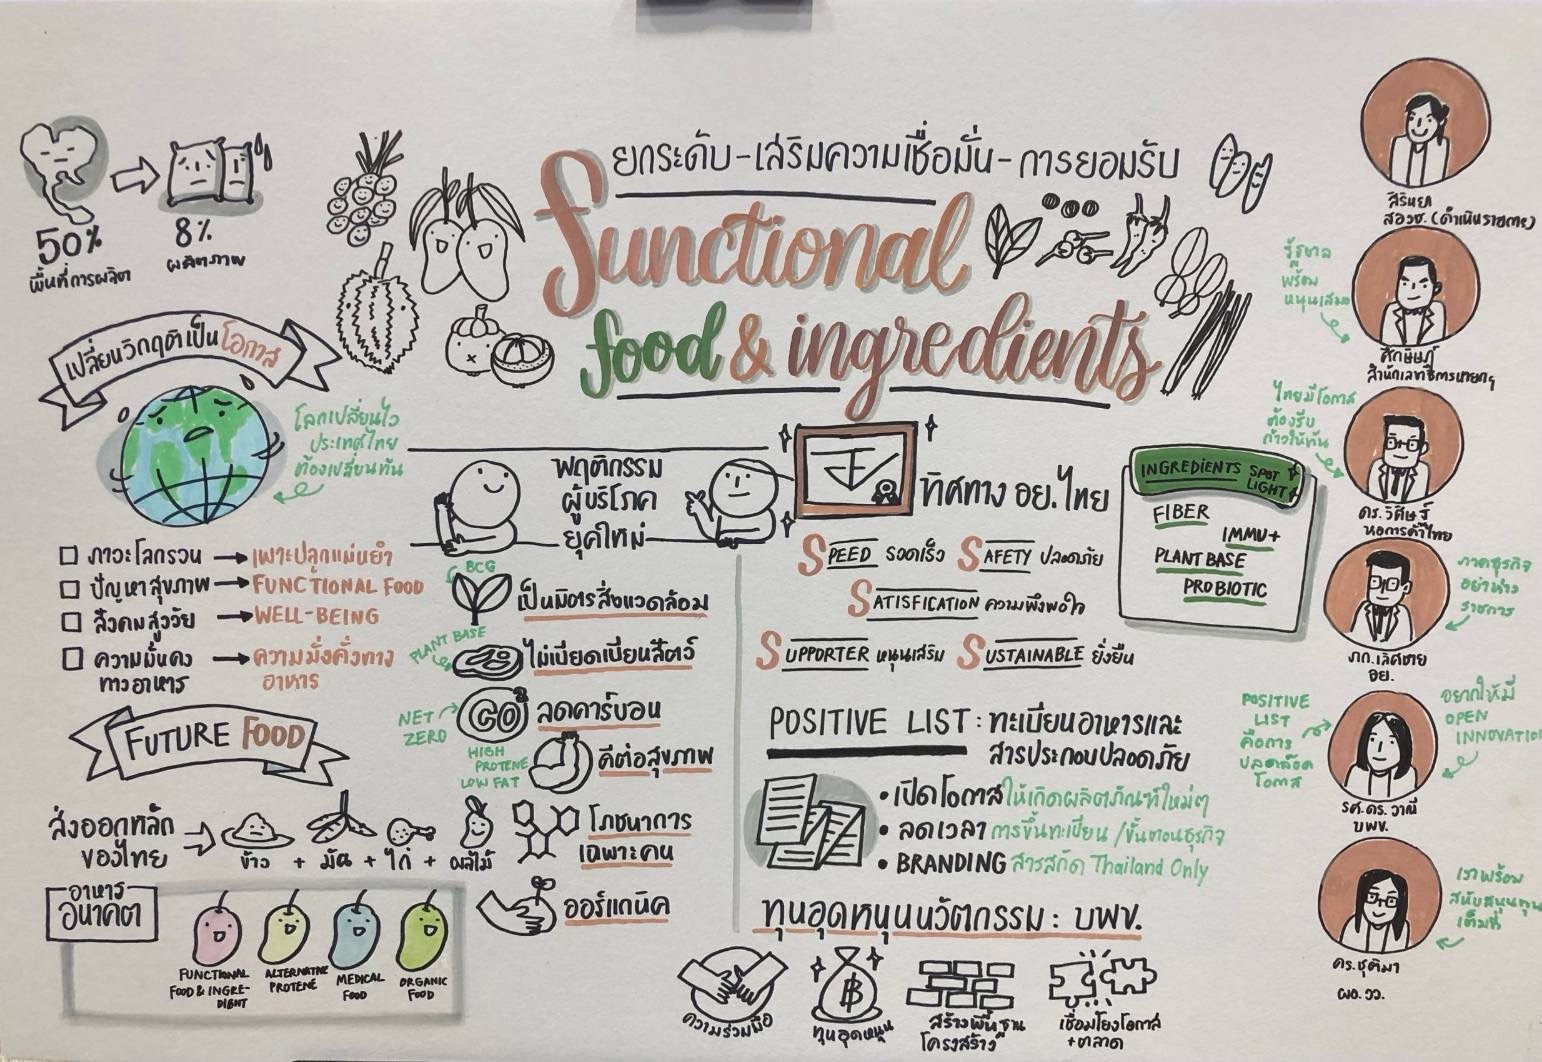 ยกระดับ-เสริมความเชื่อมั่น-การยอมรับ
Functional
food & ingredients
50%
พื้นที่การผลิต
8%
ผลิตภาพ
เปลี่ยนวิกฤติเป็นโอกาส
โลกเปลี่ยนไว
ประเทศไทย
ต้องเปลี่ยนทัน
ภาวะโลกรวน → เพาะปลูกแม่นยำ
ปัญหาสุขภาพ → FUNCTIONAL FOOD
สังคมสูงวัย → WELL-BEING
ความมั่นคง → ความมั่งคั่งทาง
ทางอาหาร อาหาร
FUTURE FOOD
ส่งออกหลัก
ของไทย
ข้าว + มัน + ไก่ + ผลไม้
อาหาร
อนาคต
FUNCTIONAL
FOOD & INGRE-
DIENT
ALTERNATIVE
PROTENE
MEDICAL
FOOD
ORGANIC
FOOD
พฤติกรรม
ผู้บริโภค
ยุคใหม่
BCG
เป็นมิตรสิ่งแวดล้อม
PLANT BASE
ไม่เบียดเบียนสัตว์
NET
ZERO
CO²
ลดคาร์บอน
HIGH
PROTENE
LOW FAT
ดีต่อสุขภาพ
โภชนาการ
เฉพาะคน
ออร์แกนิค
ทิศทาง อย.ไทย
SPEED รวดเร็ว SAFETY ปลอดภัย
SATISFICATION ความพึงพอใจ
SUPPORTER หนุนเสริม SUSTAINABLE ยั่งยืน
INGREDIENTS SPOT
LIGHT
FIBER
IMMU+
PLANT BASE
PROBIOTIC
POSITIVE LIST : ทะเบียนอาหารและ
สารประกอบปลอดภัย
• เปิดโอกาสให้เกิดผลิตภัณฑ์ใหม่ๆ
• ลดเวลา การขึ้นทะเบียน /ขั้นตอนธุรกิจ
• BRANDING สารสกัด Thailand Only
ทุนอุดหนุนนวัตกรรม : บพข.
ความร่วมมือ
ทุนอุดหนุน
สร้างพื้นฐาน
โครงสร้าง
เชื่อมโยงโอกาส
+ตลาด
สิรินยา
สอวช. (ดำเนินรายการ)
รัฐบาล
พร้อม
หนุนเสริม
ศักษิษฏ์
สำนักเลขาธิการนายกฯ
ไทยมีโอกาส
ต้องรีบ
ก้าวให้ทัน
ดร.วิศิษฐ์
หอการค้าไทย
ภาคธุรกิจ
อย่าห่าง
ราชการ
ภก.เลิศชาย
อย.
POSITIVE
LIST
คือการ
ปลดล็อค
โอกาส
อยากให้มี
OPEN
INNOVATION
รศ.ดร.วาณี
บพข.
เราพร้อม
สนับสนุนทุน
เต็มที่
ดร.ชุติมา
ผอ.วว.